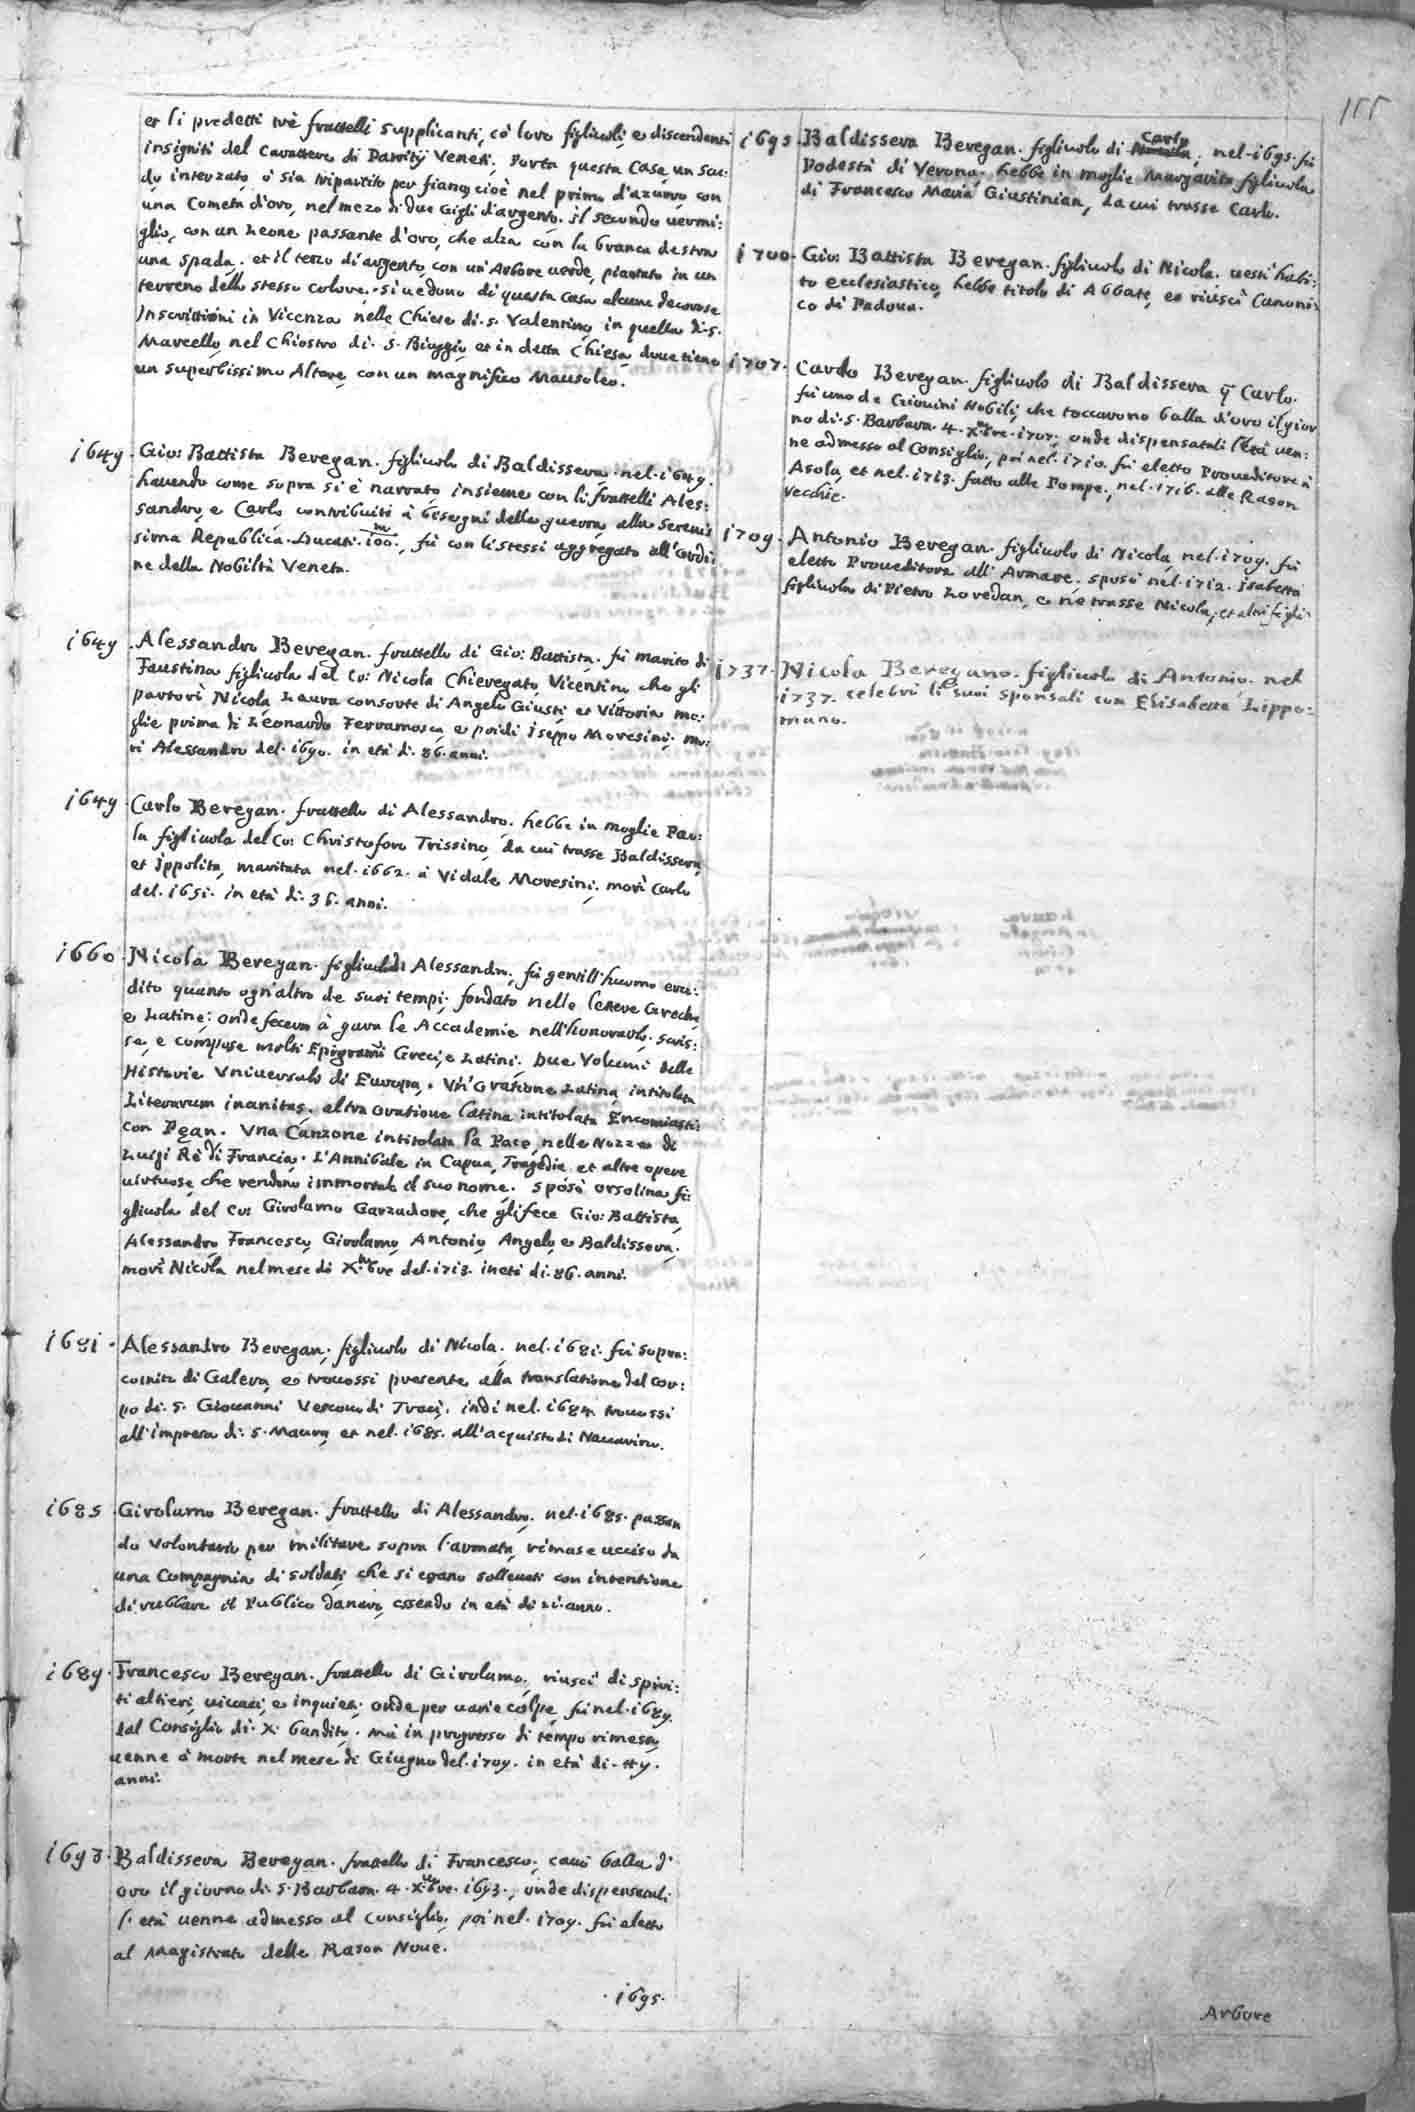 155
et li predetti trè frattelli supplicanti, cò loro figliuoli, e discendenti
insigniti del Carattere di Patritij Veneti. Porta questa Casa un Scu:
do interzato, ò sia tripartito per fianco, cioè nel primo d'azurro con
una Cometa d'oro, nel mezo di due Gigli d'argento. il secondo vermi:
glio, con un Leone passante d'oro, che alza con la branca destra
una spada. et il terzo di argento, con un'Arbore verde, piantato in un
terreno dello stesso colore. si vedono di questa casa alcune decorose
Inscrittioni in Vicenza nelle Chiese di. S. Valentino, in quella di. S.
Marcello, nel Chiostro di. S. Biaggio, et in detta Chiesa, dove tiene
un superbissimo Altare, con un magnifico Mausoleo.
1649. Gio: Battista Beregan. figliuolo di Baldissera, nel. 1649.
havendo come sopra si è narrato insieme con li frattelli Ales:
sandro, e Carlo contribuiti à bisogni della guerra alla Serenis
sima Republica. Ducati. 100.m, fù con li stessi aggregato all'ordi:
ne della Nobiltà Veneta.
1649. Alessandro Beregan. frattello di Gio: Battista. fù marito di
Faustina figliuola del Co: Nicola Chieregato, Vicentino che gli
partorì Nicola Laura consorte di Angelo Giusti et Vittoria mo:
glie prima di Leonardo Ferramosca e poi di Iseppo Moresini. mo:
rì Alessandro del. 1690. in età di. 86. anni.
1649. Carlo Beregan. frattello di Alessandro. hebbe in moglie Pao:
la figliuola del Co: Christoforo Trissino, da cui trasse Baldissera,
et Ippolita, maritata nel. 1662. à Vidale Moresini. morì Carlo
del. 1651. in età di. 36. anni.
1660. Nicola Beregan. figliuolo di Alessandro, fù gentill'huomo eru:
dito quanto ogn'altro de suoi tempi. fondato nelle lettere Greche,
e Latine; onde fecero à gara le Accademie nell'honorarlo. scris:
se, e compose molti Epigrammi Greci, e Latini. Due Volumi delle
Historie Universale di Europa. Un'Oratione Latina, intitolata
Literarum inanitas. altra oratione latina intitolata Encomiasti:
con Pęan. Una Canzone intitolata la Pace, nelle Nozze di
Luigi Rè di Francia. L'Annibale in Capua, Tragedia et altre opere
virtuose, che rendono immortale il suo nome. sposò Orsolina fi:
gliuola del Co: Girolamo Garzadore, che gli fece Gio: Battista,
Alessandro, Francesco, Girolamo, Antonio, Angelo, e Baldissera.
morì Nicola nel mese di Xmbre del. 1713. in età di. 86. anni.
1681. Alessandro Beregan, figliuolo di Nicola. nel. 1681. fù Sopra:
comito di Galera, e trovossi presente alla translatione del cor:
po di. S. Giovanni Vescovo di Traù, indi nel. 1684. trovossi
all'impresa di. S. Maura, et nel. 1685. all'acquisto di Navarino.
1685. Girolamo Beregan. frattello di Alessandro. nel. 1685. passan
do volontario per militare sopra l'armata, rimase ucciso da
una Compagnia di soldati, che si erano sollevati con intentione
di rubbare il Publico danaro, essendo in età di 21. anno.
1689. Francesco Beregan. frattello di Girolamo, riuscì di spiri:
ti altieri, vivaci, e inquieti. onde per varie colpe, fù nel. 1689.
dal Consiglio di. X. bandito. mà in progresso di tempo rimesso,
venne à morte nel mese di Giugno del. 1709. in età di. 49.
anni.
1693. Baldissera Beregan. frattello di Francesco, cavò balla d'
oro il giorno di. S. Barbara. 4. Xmbre. 1693., onde dispensatali
l'età venne admesso al Consiglio, poi nel. 1709. fù eletto
al Magistrato delle Rason Nove.
. 1695.
1695. Baldissera Beregan. figliuolo di Carlo, nel. 1695. fù
Podestà di Verona. hebbe in moglie Margarita figliuola
di Francesco Maria Giustinian, da cui trasse Carlo.
1700. Gio: Battista Beregan. figliuolo di Nicola. vestì habi:
to ecclesiastico, hebbe titolo di Abbate, e riuscì Canoni:
co di Padova.
1707. Carlo Beregan. figliuolo di Baldissera q. Carlo.
fù uno de Giovini Nobili, che toccarono balla d'oro il gior
no di. S. Barbara. 4. Xmbre. 1707. onde dispensatali l'età ven:
ne admesso al Consiglio, poi nel. 1710. fù eletto Proveditore à
Asola, et nel. 1713. fatto alle Pompe, nel. 1716. alle Rason
Vecchie.
1709. Antonio Beregan. figliuolo di Nicola, nel. 1709. fù
eletto Proveditore all'Armare. sposò nel. 1712. Isabetta
figliuola di Pietro Loredan, e ne trasse Nicola, et altri figli.
1737. Nicola Beregano. figliuolo di Antonio. nel
1737. celebrò li suoi sponsali con Elisabetta Lippo:
mano.
Arbore